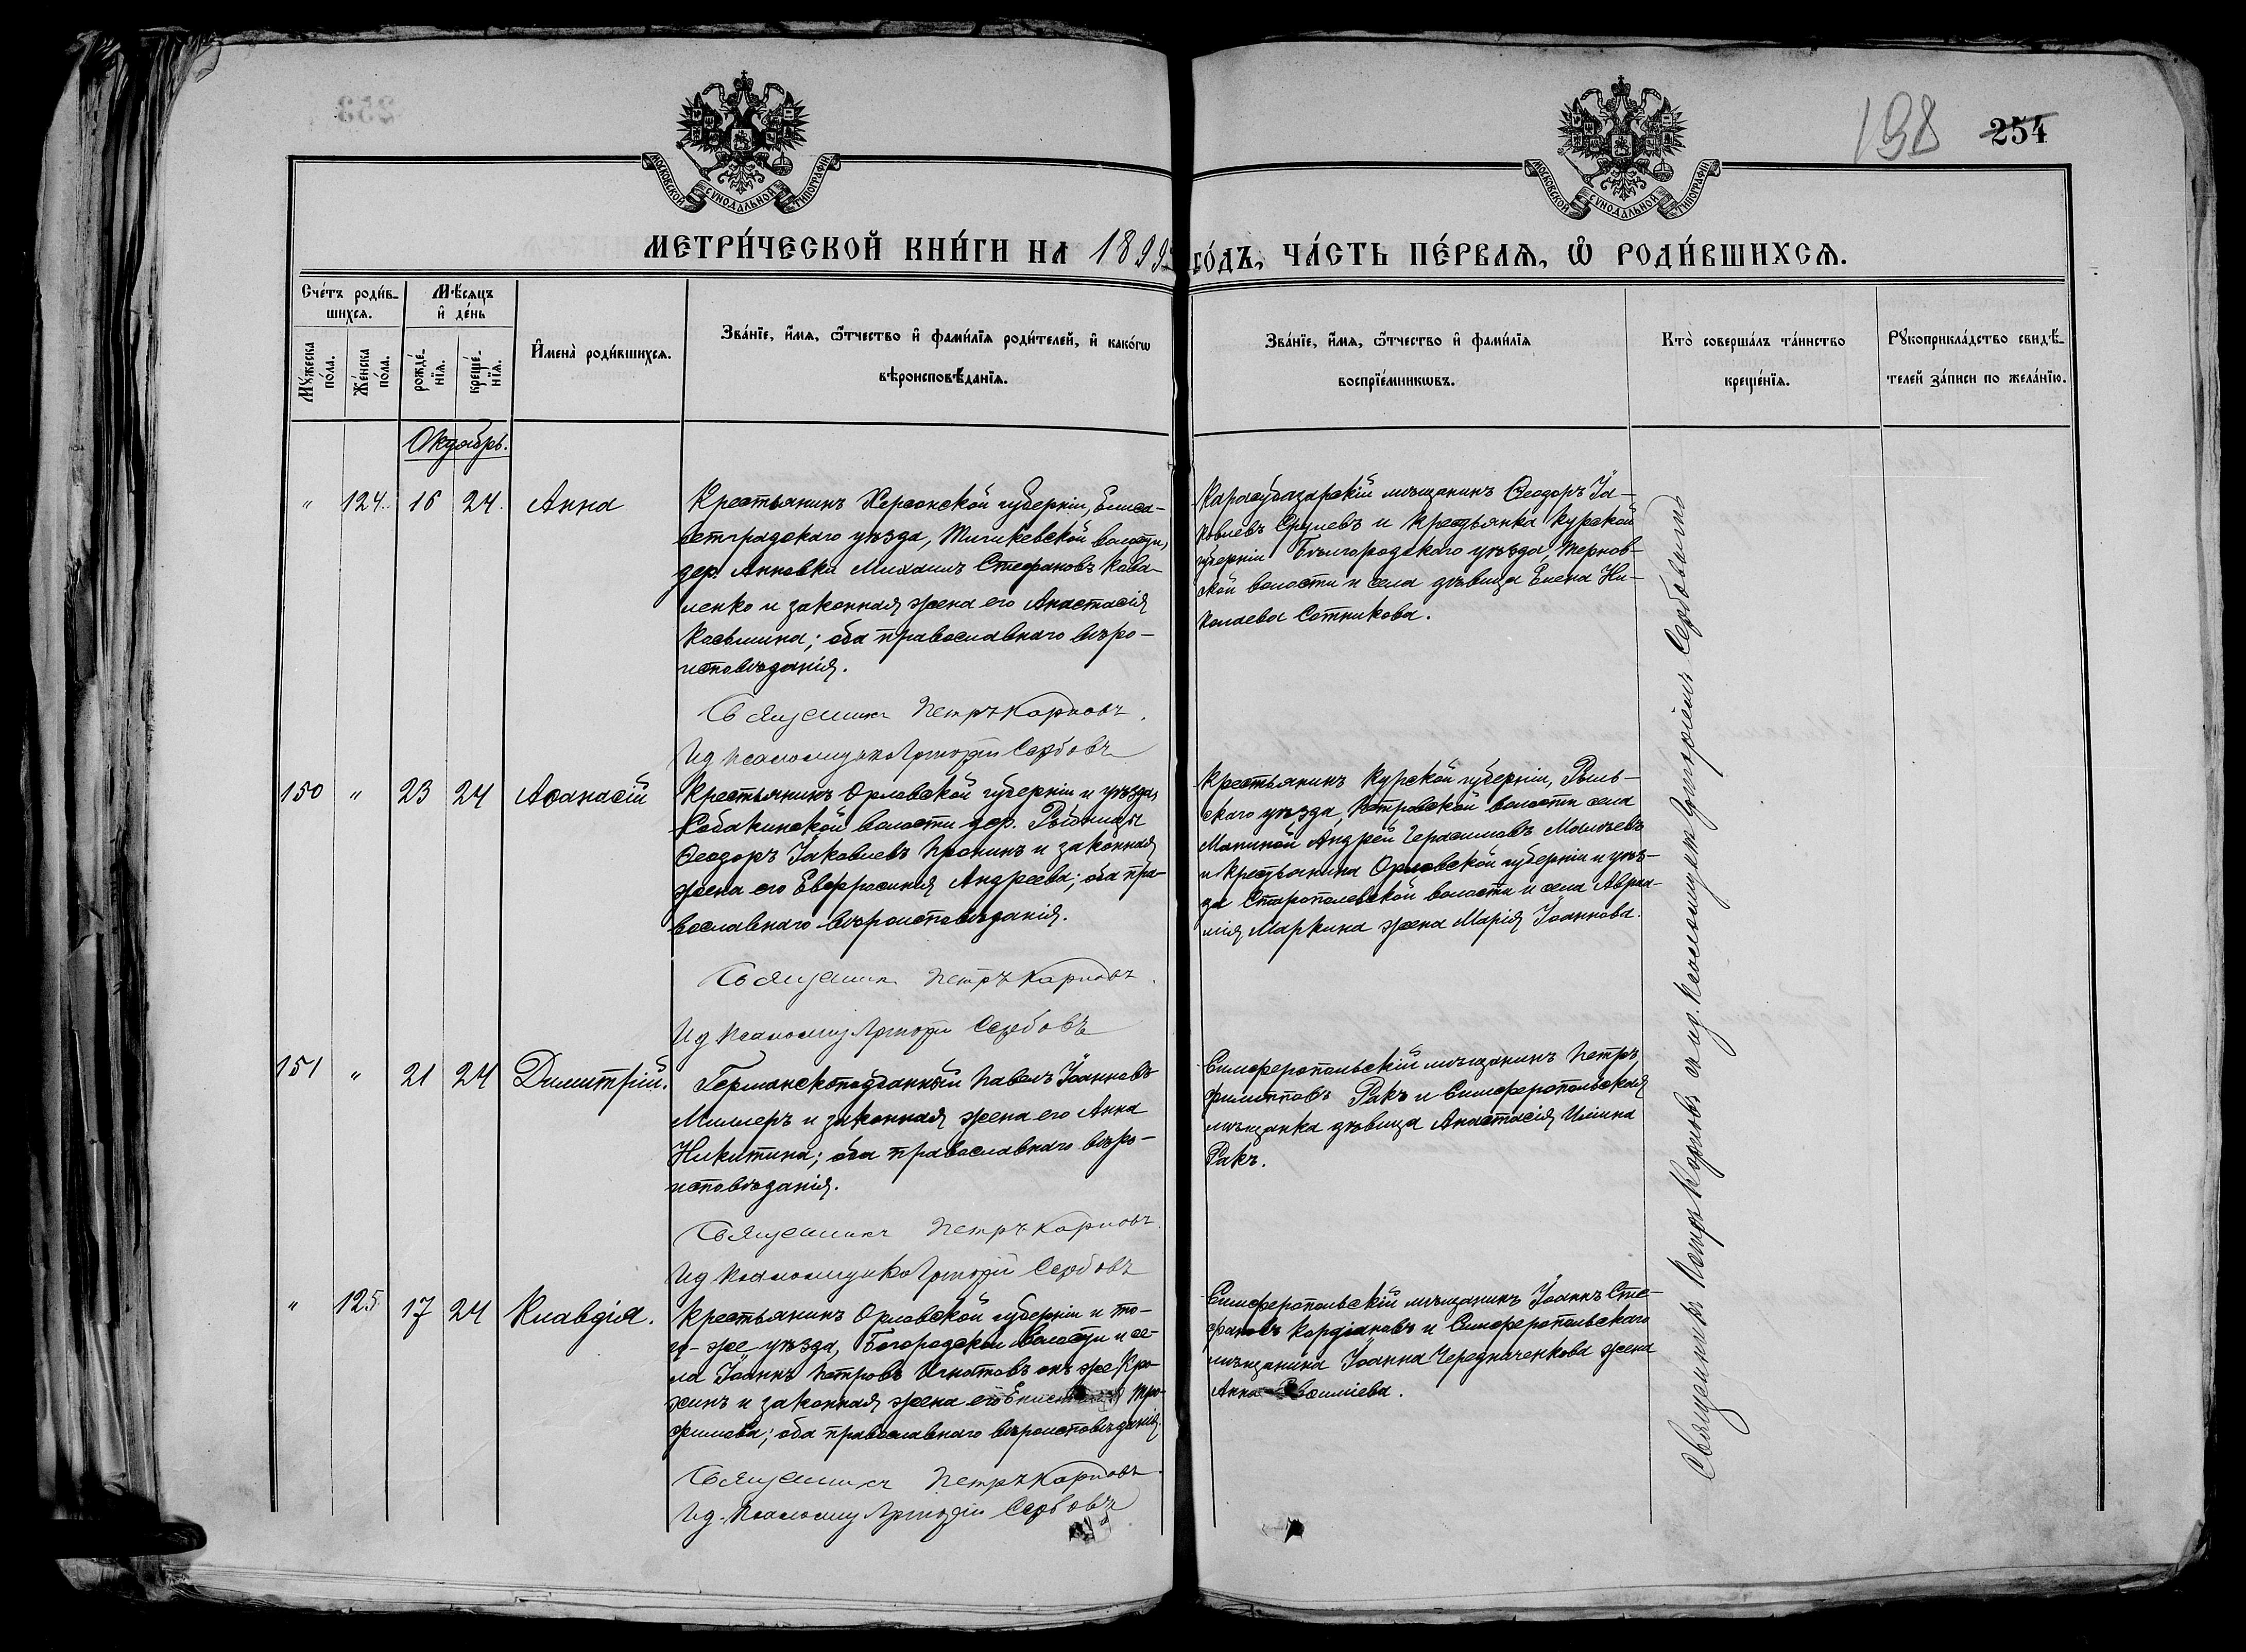 253
198 254
МОСКОВСКОЙ СѴНОДАЛЬНОЙ ТИПОГРАФІИ
МОСКОВСКОЙ СѴНОДАЛЬНОЙ ТИПОГРАФІИ
МЕТРИ́ЧЕСКОЙ КНИ́ГИ НА 1899 ГО́ДЪ, ЧА́СТЬ ПЕ́РВАѦ, Ѡ҆ РОДИ́ВШИХСѦ.
Сче́тъ роди́в-
шихсѧ.
Мꙋ́жеска по́ла.
Же́нска по́ла.
Мѣ́сѧцъ
и҆ де́нь
рожде́-
нїѧ.
креще́-
нїѧ.
И҆мена̀ роди́вшихсѧ.
Зва́нїе, и҆́мѧ, ѻ҆́тчество и҆ фами́лїѧ роди́телей, и҆ како́гѡ
вѣроисповѣ́данїѧ.
Зва́нїе, и҆́мѧ, ѻ҆́тчество и҆ фами́лїѧ
воспрїе́мникѡвъ.
Кто̀ соверша́лъ та́инство
креще́нїѧ.
Рꙋкоприкла́дство свидѣ́-
телей за́писи по жела́нїю.
Октябрь.
" 124. 16 24. Анна
Крестьянинъ Херсонской губерніи, Елиса-
ветградскаго уѣзда, волости,
дер. Анновки Михаилъ Стефановъ Кова-
ленко и законная жена его Анастасія
Косьмина; оба православнаго вѣро-
исповѣданія.
Священникъ Петръ Карповъ.
Ид псаломщика Григорій Сербовъ
Карасубазарскій мѣщанинъ Ѳеодоръ Іа-
ковлевъ и крестьянка Курской
губерніи Бѣлгородскаго уѣзда, Тернов-
ской волости и села дѣвица Елена Ни-
колаева Сотникова.
150 " 23 24 Аѳанасій
Крестьянинъ Орловской губерніи и уѣзда,
Собакинской волости дер. Рыбницы
Ѳеодоръ Іаковлевъ Пронинъ и законная
жена его Евфросинія Андреева; оба пра-
вославнаго вѣроисповѣданія.
Священникъ Петръ Карповъ.
Ид псаломщ Григорій Сербовъ
Крестьянинъ Курской губерніи, Рыль-
скаго уѣзда, Петровской волости села
Андрей Герасимовъ
и крестьянина Орловской губерніи и уѣз-
да волости и села Авраа-
мія Маркина жена Марія Іоаннова.
151 " 21 24 Димитрій.
Германскоподданный Павелъ Іоанновъ
Миллеръ и законная жена его Анна
Никитина; оба православнаго вѣро-
исповѣданія.
Священникъ Петръ Карповъ.
Ид псаломщика Григорій Сербовъ
Симферопольскій мѣщанинъ Петръ
Филипповъ Ракъ и Симферопольская
мѣщанка дѣвица Анастасія Ильина
Ракъ.
" 125 17 24 Клавдія.
Крестьянинъ Орловской губерніи и то-
го-же уѣзда, Богородской волости и се-
ла Іоаннъ Петровъ Игнатовъ онъ же
и законная жена его Тро-
фимова; оба православнаго вѣроисповѣданія.
Священникъ Петръ Карповъ.
Ид. псаломщ Григорій Сербовъ
Симферопольскій мѣщанинъ Іоаннъ Сте-
фановъ и Симферопольскаго
мѣщанина Іоанна Чередниченкова жена
Анна Василіева.
Священникъ Петръ Карповъ съ ид. псаломщика Григоріемъ Сербовымъ